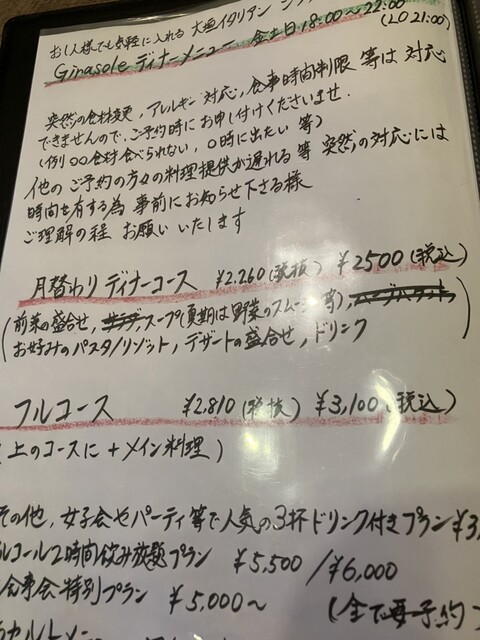 お1人様でも気軽に入れる 大垣イタリアン
Girasole ディナーメニュー 金土日 18:00〜22:00
(LO 21:00)
突然の食材変更, アレルギー対応, 食事時間制限 等は 対応
できませんので, ご予約時に お申し付けくださいませ.
(例) 〇〇食材食べられない, 〇時に出たい 等)
他の ご予約の方々の料理提供が遅れる等 突然の対応には
時間を有する為 事前にお知らせ下さる様
ご理解の程 お願い いたします
月替わり ディナーコース ¥2,260(税抜) ¥2500(税込)
(前菜の盛合せ, スープ(夏期は野菜のスムージー等),
お好みのパスタ/リゾット, デザートの盛合せ, ドリンク)
フルコース ¥2,810(税抜) ¥3,100(税込)
(上のコースに + メイン料理)
その他, 女子会やパーティ等で人気の3杯ドリンク付きプラン ¥3,
ルコール2時間飲み放題プラン ¥5,500/¥6,000
食事会特別プラン ¥5,000〜 (全て要予約